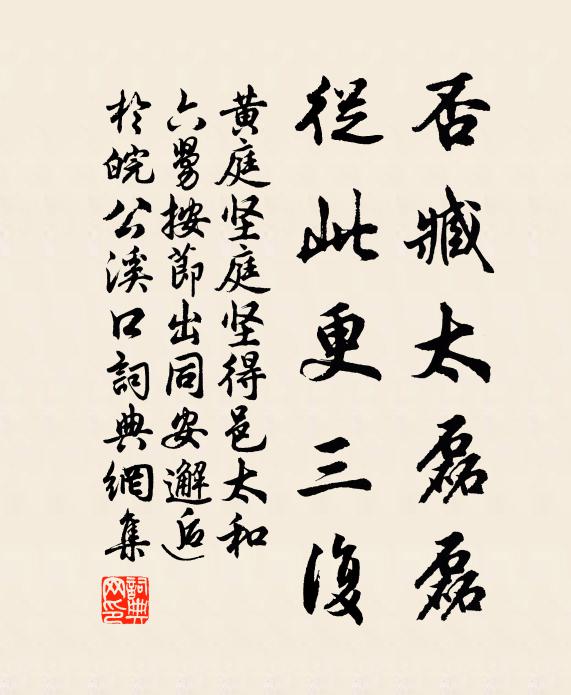 否臧太磊磊
從此更三復
黄庭坚庭坚得邑太和
六舅按節出同安邂逅
於皖公溪口詞典網集
詞典網印